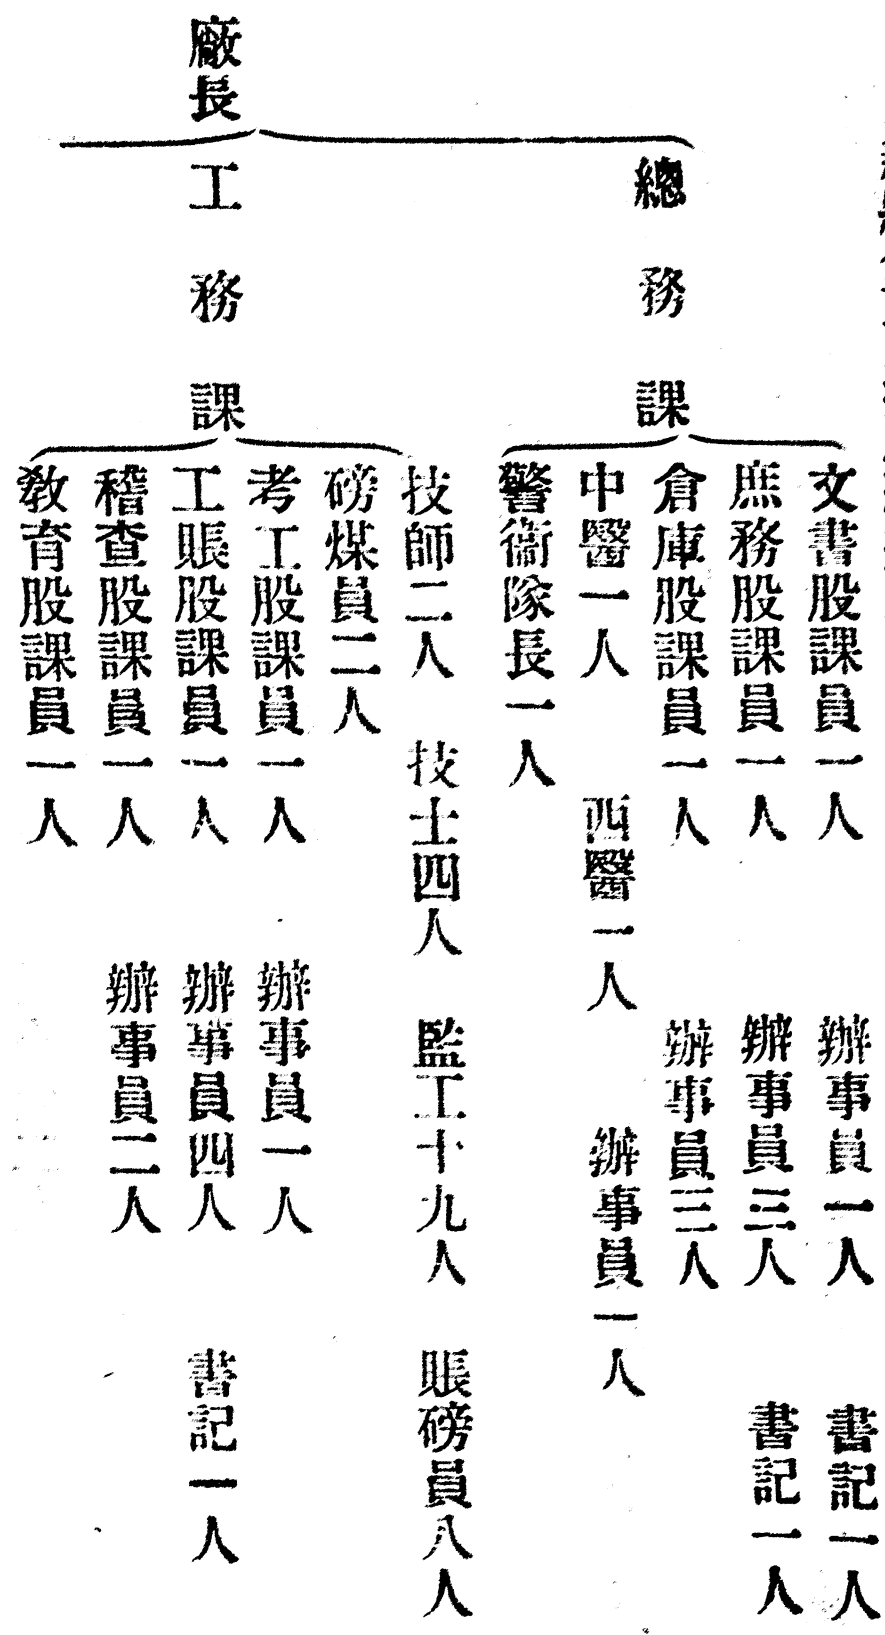 廠長
總務課
文書股課員一人　辦事員一人　書記一人
庶務股課員一人　辦事員三人　書記一人
倉庫股課員一人　辦事員三人
中醫一人　西醫一人　辦事員一人
警衞隊長一人
工務課
技師二人　技士四人　監工十九人　賬磅員八人
磅煤員二人
考工股課員一人　辦事員一人
工賬股課員一人　辦事員四人　書記一人
稽查股課員一人　辦事員二人
敎育股課員一人